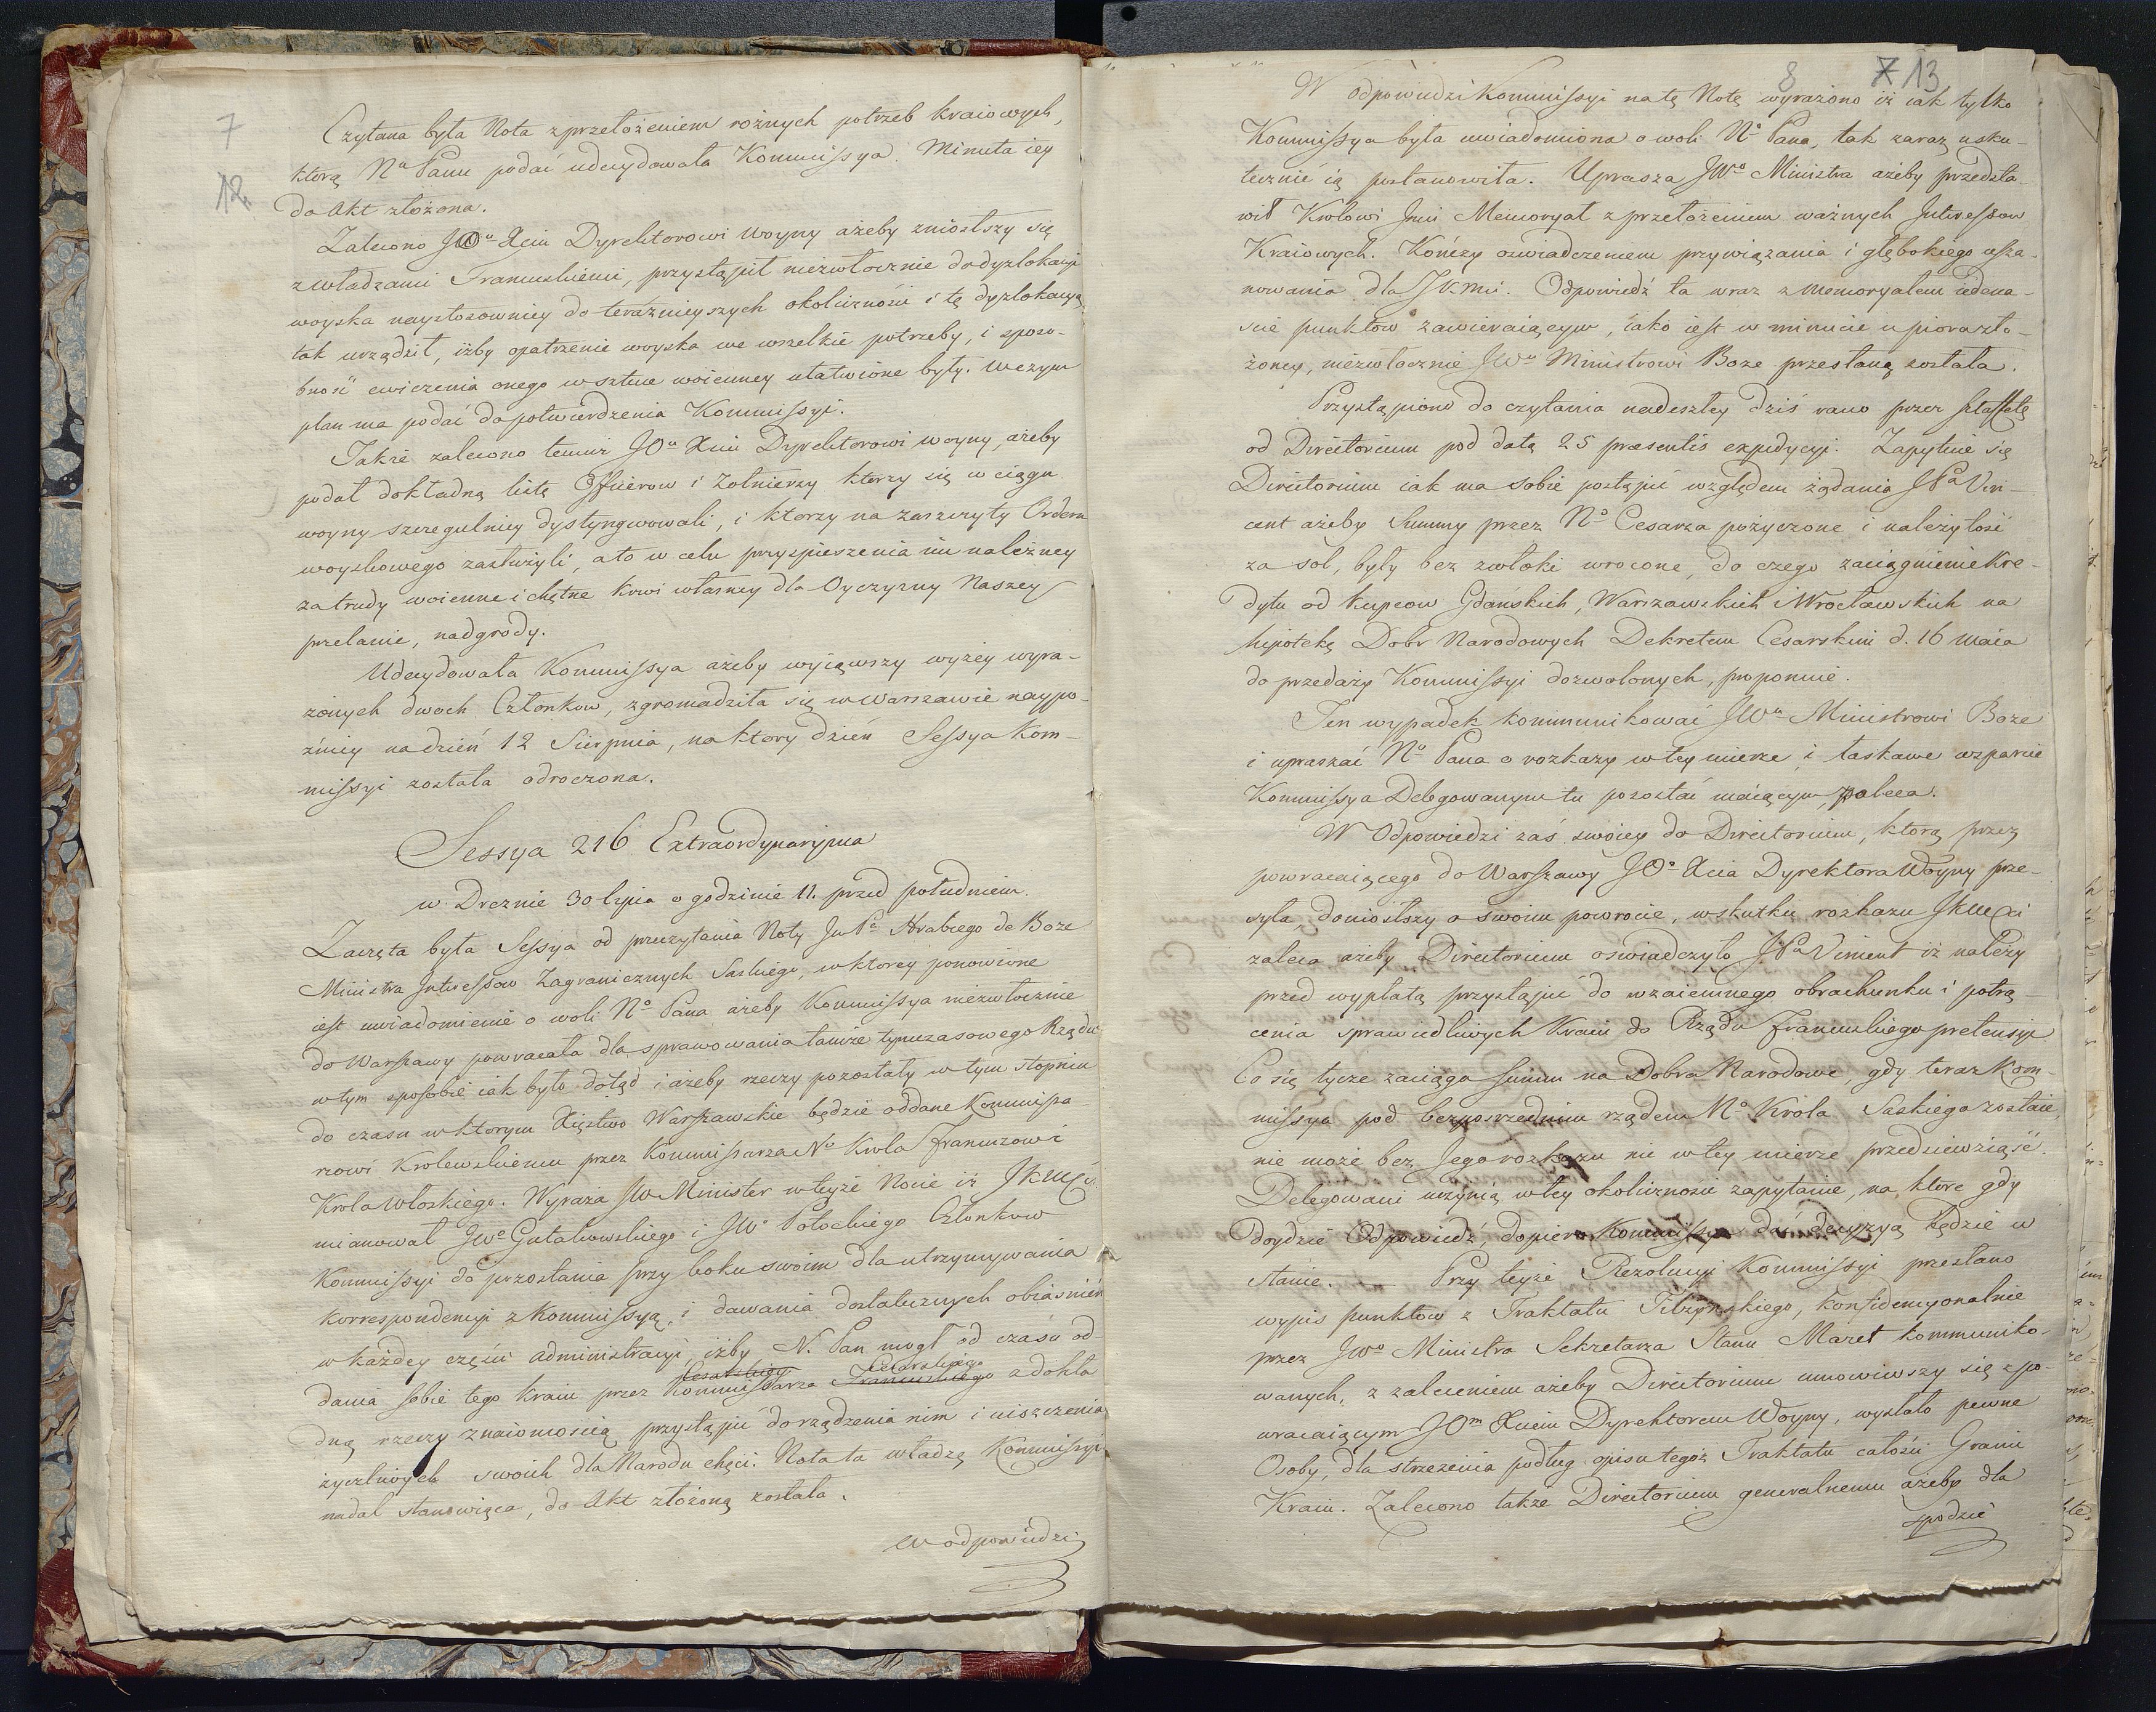 7
12.
Czytana była Nota z przełożeniem rożnych potrzeb kraiowych,
ktorą Nu Panu podać udecydowała Kommissya. Minuta iey
do Akt złożona.
Zalecono JOu Xciu Dyrektorowi Woyny ażeby zniosłszy się
z władzami Francuskiemi, przystąpił niezwłocznie do dyzlokacyi
woyska naystosowniey do teraźnieyszych okoliczności i tę dyzlokacyą
tak urządził, iżby opatrzenie woyska we wszelkie potrzeby, i sposo-
bność cwiczenia onego w sztuce woienney ułatwione były. W czym
plan ma podać do potwierdzenia Kommissyi.
Także zalecono temuż JOu Xciu Dyrektorowi woyny, ażeby
podał dokładną listę Officierow i Żołnierzy ktorzy się w ciągu
woyny szczegulniey dystyngwowali, i ktorzy na zaszczyty Orderu
woyskowego zasłużyli, a to w celu przyspieszenia im należney
za trudy woienne i chętne krwi własney dla Oyczyzny Naszey
przelanie, nadgrody.
Udecydowała Kommissya ażeby wyiąwszy wyżey wyra-
żonych dwoch Członkow, zgromadziła się w Warszawie naypo-
źniey na dzień 12 Sierpnia, na ktory dzień Sessya Kom-
missyi została odroczona.
Sessya 216 Extraordynaryina
w Dreznie 30 lipca o godzinie 11. przed południem.
Zaczęta była Sessya od przeczytania Noty JmPa Hrabiego de Boze
Ministra Interessow Zagranicznych Saskiego, w ktorey ponowione
iest uwiadomienie o woli No Pana ażeby Kommissya niezwłocznie
do Warszawy powracała dla sprawowania tamże tymczasowego Rządu
w tym sposobie iak było dotąd i ażeby rzeczy pozostały w tym stopniu
do czasu w ktorym Xięstwo Warszawskie będzie oddane Kommissa-
rzowi Krolewskiemu przez Kommissarza No Krola Francuzow i
Krola Włoskiego. Wyraża JW Minister w teyże Nocie iż JKMć
mianował JWo Gutakowskiego i JWo Potockiego Członkow
Kommissyi do pozostania przy boku swoim dla utrzymywania
korrespondencyi z Kommissyą, i dawania dostatecznych obiaśnień
w każdey części administracyi, iżby N. Pan mogł od czasu od-
Cesarskiego Cesarskiego
dania sobie tego kraiu przez Kommissarza Francuskiego z dokła
dną rzeczy znaiomością przystąpić do rządzenia nim i uiszczenia
życzliwych swoich dla Narodu chęci. Nota ta władzę Kommissyi
nadal stanowiąca, do Akt złożoną została.
W odpowiedzi
8 7 13
W odpowiedzi Kommissyi na tę Notę wyrażono iż iak tylko
Kommissya była uwiadomiona o woli No Pana, tak zaraz usku-
tecznić ią postanowiła. Uprasza JWo Ministra ażeby przedsta-
wił Krolowi Jmci Memoryał z przełożeniem ważnych Interessow
Kraiowych. Kończy oswiadczeniem przywiązania i głębokiego usza-
nowania dla JKMci. Odpowiedź ta wraz z memoryałem iedena-
scie punktow zawieraiącym, iako iest w minucie u piora zło-
żoney, niezwłocznie JWu Ministrowi Boze przesłaną została.
Przystąpiono do czytania nadeszłey dziś rano przez sztaffetę
od Directorium pod datą 25 praesentis expedycyi. Zapytuie się
Directorium iak ma sobie postąpić względem żądania JPa Vin-
cent ażeby Summy przez No Cesarza pożyczone i należytość
za sol, były bez zwłoki wrocone, do czego zaciągnienie kre-
dytu od kupcow Gdańskich, Warszawskich i Wrocławskich na
hipotekę Dobr Narodowych Dekretem Cesarskim d. 16 maia
do przedaży Kommissyi dozwolonych, proponuie.
Ten wypadek kommunikować JWu Ministrowi Boze
i upraszać No Pana o rozkazy w tey mierze i łaskawe wsparcie
Kommissya Delegowanym tu pozostać maiącym, zaleca.
W Odpowiedzi zaś swoiey do Directorium, ktorą przez
powracaiącego do Warszawy JOo Xcia Dyrektora Woyny prze-
syła, doniosłszy o swoim powrocie, w skutku rozkazu JKMci
zaleca ażeby Directorium oświadczyło JPu Vincent iż należy
przed wypłatą przystąpić do wzaiemnego obrachunku i potrą-
cenia sprawiedliwych Kraiu do Rządu Francuskiego pretensyi.
Co się tycze zaciągu summ na Dobra Narodowe, gdy teraz Kom-
missya pod bezposrzednim rządem No Krola Saskiego zostaie,
nie może bez Jego rozkazu nic w tey mierze przedsiewziąść.
Delegowani uczynią w tey okoliczności zapytanie, na ktore gdy
doydzie Odpowiedź, dopiero Kommissya dać decyzyą będzie w
stanie. — Przy teyże Rezolucyi Kommissyi przesłano
wypis punktow z Traktatu Tilzyńskiego, konfidencyonalnie
przez JWo Ministra Sekretarza Stanu Maret kommuniko-
wanych, z zaleceniem ażeby Directorium umowiwszy się z po-
wracaiącym JOm Xciem Dyrektorem Woyny, wysłało pewne
Osoby, dla strzeżenia podług opisu tegoż Traktatu całości Granic
Kraiu. Zalecono także Directorium generalnemu ażeby dla
spodzie